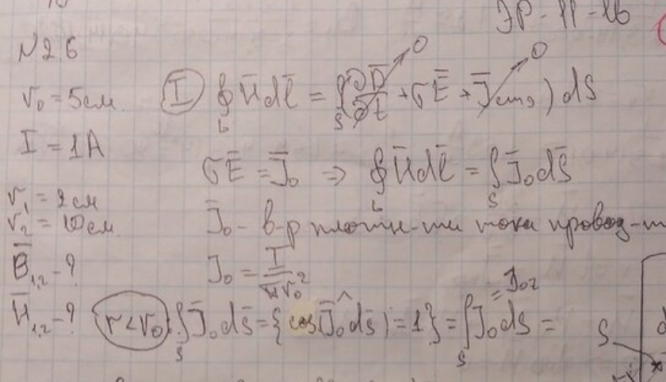 ЭР-11-16
N26
r₀ = 5см
I = 1А
r₁ = 2см
r₂ = 10см
B̄₁,₂ - ?
H̄₁,₂ - ?
I ∮_L H̄dl̄ = ∫_S (∂D̄/∂t → 0 + σĒ + J̄стор → 0) ds̄
σĒ = J̄₀ ⇒ ∮_L H̄dl̄ = ∫_S J̄₀ds̄
J̄₀ - в-р плотн-ти тока провод-т
J₀ = I/πr₀²
r < r₀ ∫_S J̄₀ds̄ = {cos(J̄₀^ds̄) = 1} = ∫_S J₀ds =
= J₀z
S